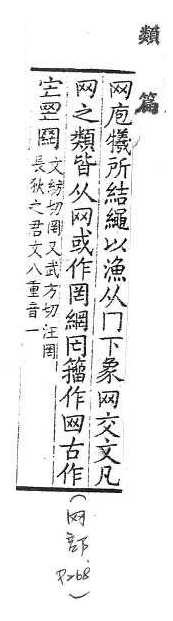 類篇
网庖犧所結繩以漁从冂下象网交文凡
网之類皆从网或作罔網籀作古作
文紡切罔又武方切汪罔
長狄之君文八重音一
(网部 P268)